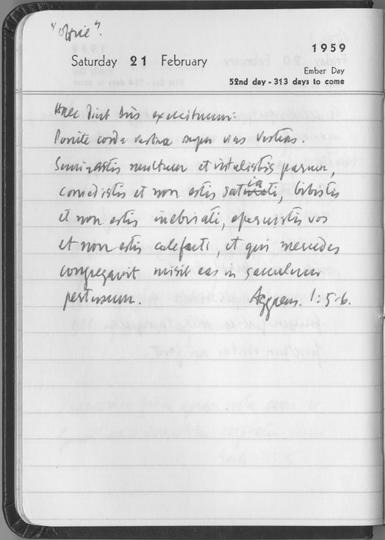 1959
Saturday 21 February
Ember Day
52nd day - 313 days to come
Haec dicit Dns exercituum:
Ponite corda vestra super vias vestras.
Seminastis multum et intulistis parum,
comedistis et non estis satiati, bibistis
et non estis inebriati, operuistis vos
et non estis calefacti, et qui mercedes
congregavit misit eas in sacculum
pertusum. Aggaeus. 1:5-6.